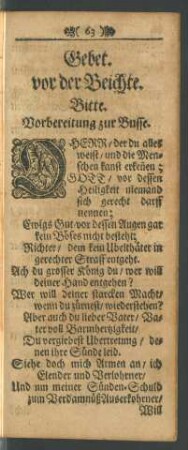 ( 63 )
Gebet.
vor der Beichte.
Bitte.
Vorbereitung zur Busse.
OHERR, der du alles
weist, und die Men-
schen kanst erkeñen;
GOTT, vor dessen
Heiligkeit niemand
sich gerecht darff
nennen;
Ewigs Gut, vor dessen Augen gar
kein Böses nicht besteht;
Richter, dem kein Übelthäter in
gerechter Straff entgeht.
Ach du grosser König du, wer will
deiner Hand entgehen?
Wer will deiner starcken Macht,
wenn du zürnest, wiederstehen?
Aber auch du lieber Vater, Va-
ter voll Barmhertzigkeit,
Du vergiebest Übertretung, de-
nen ihre Sünde leid.
Siehe doch mich Armen an, ich
Elender und Verlohrner,
Und um meiner Sünden-Schuld
zum Verdamnüß Auserkohrner,
Will